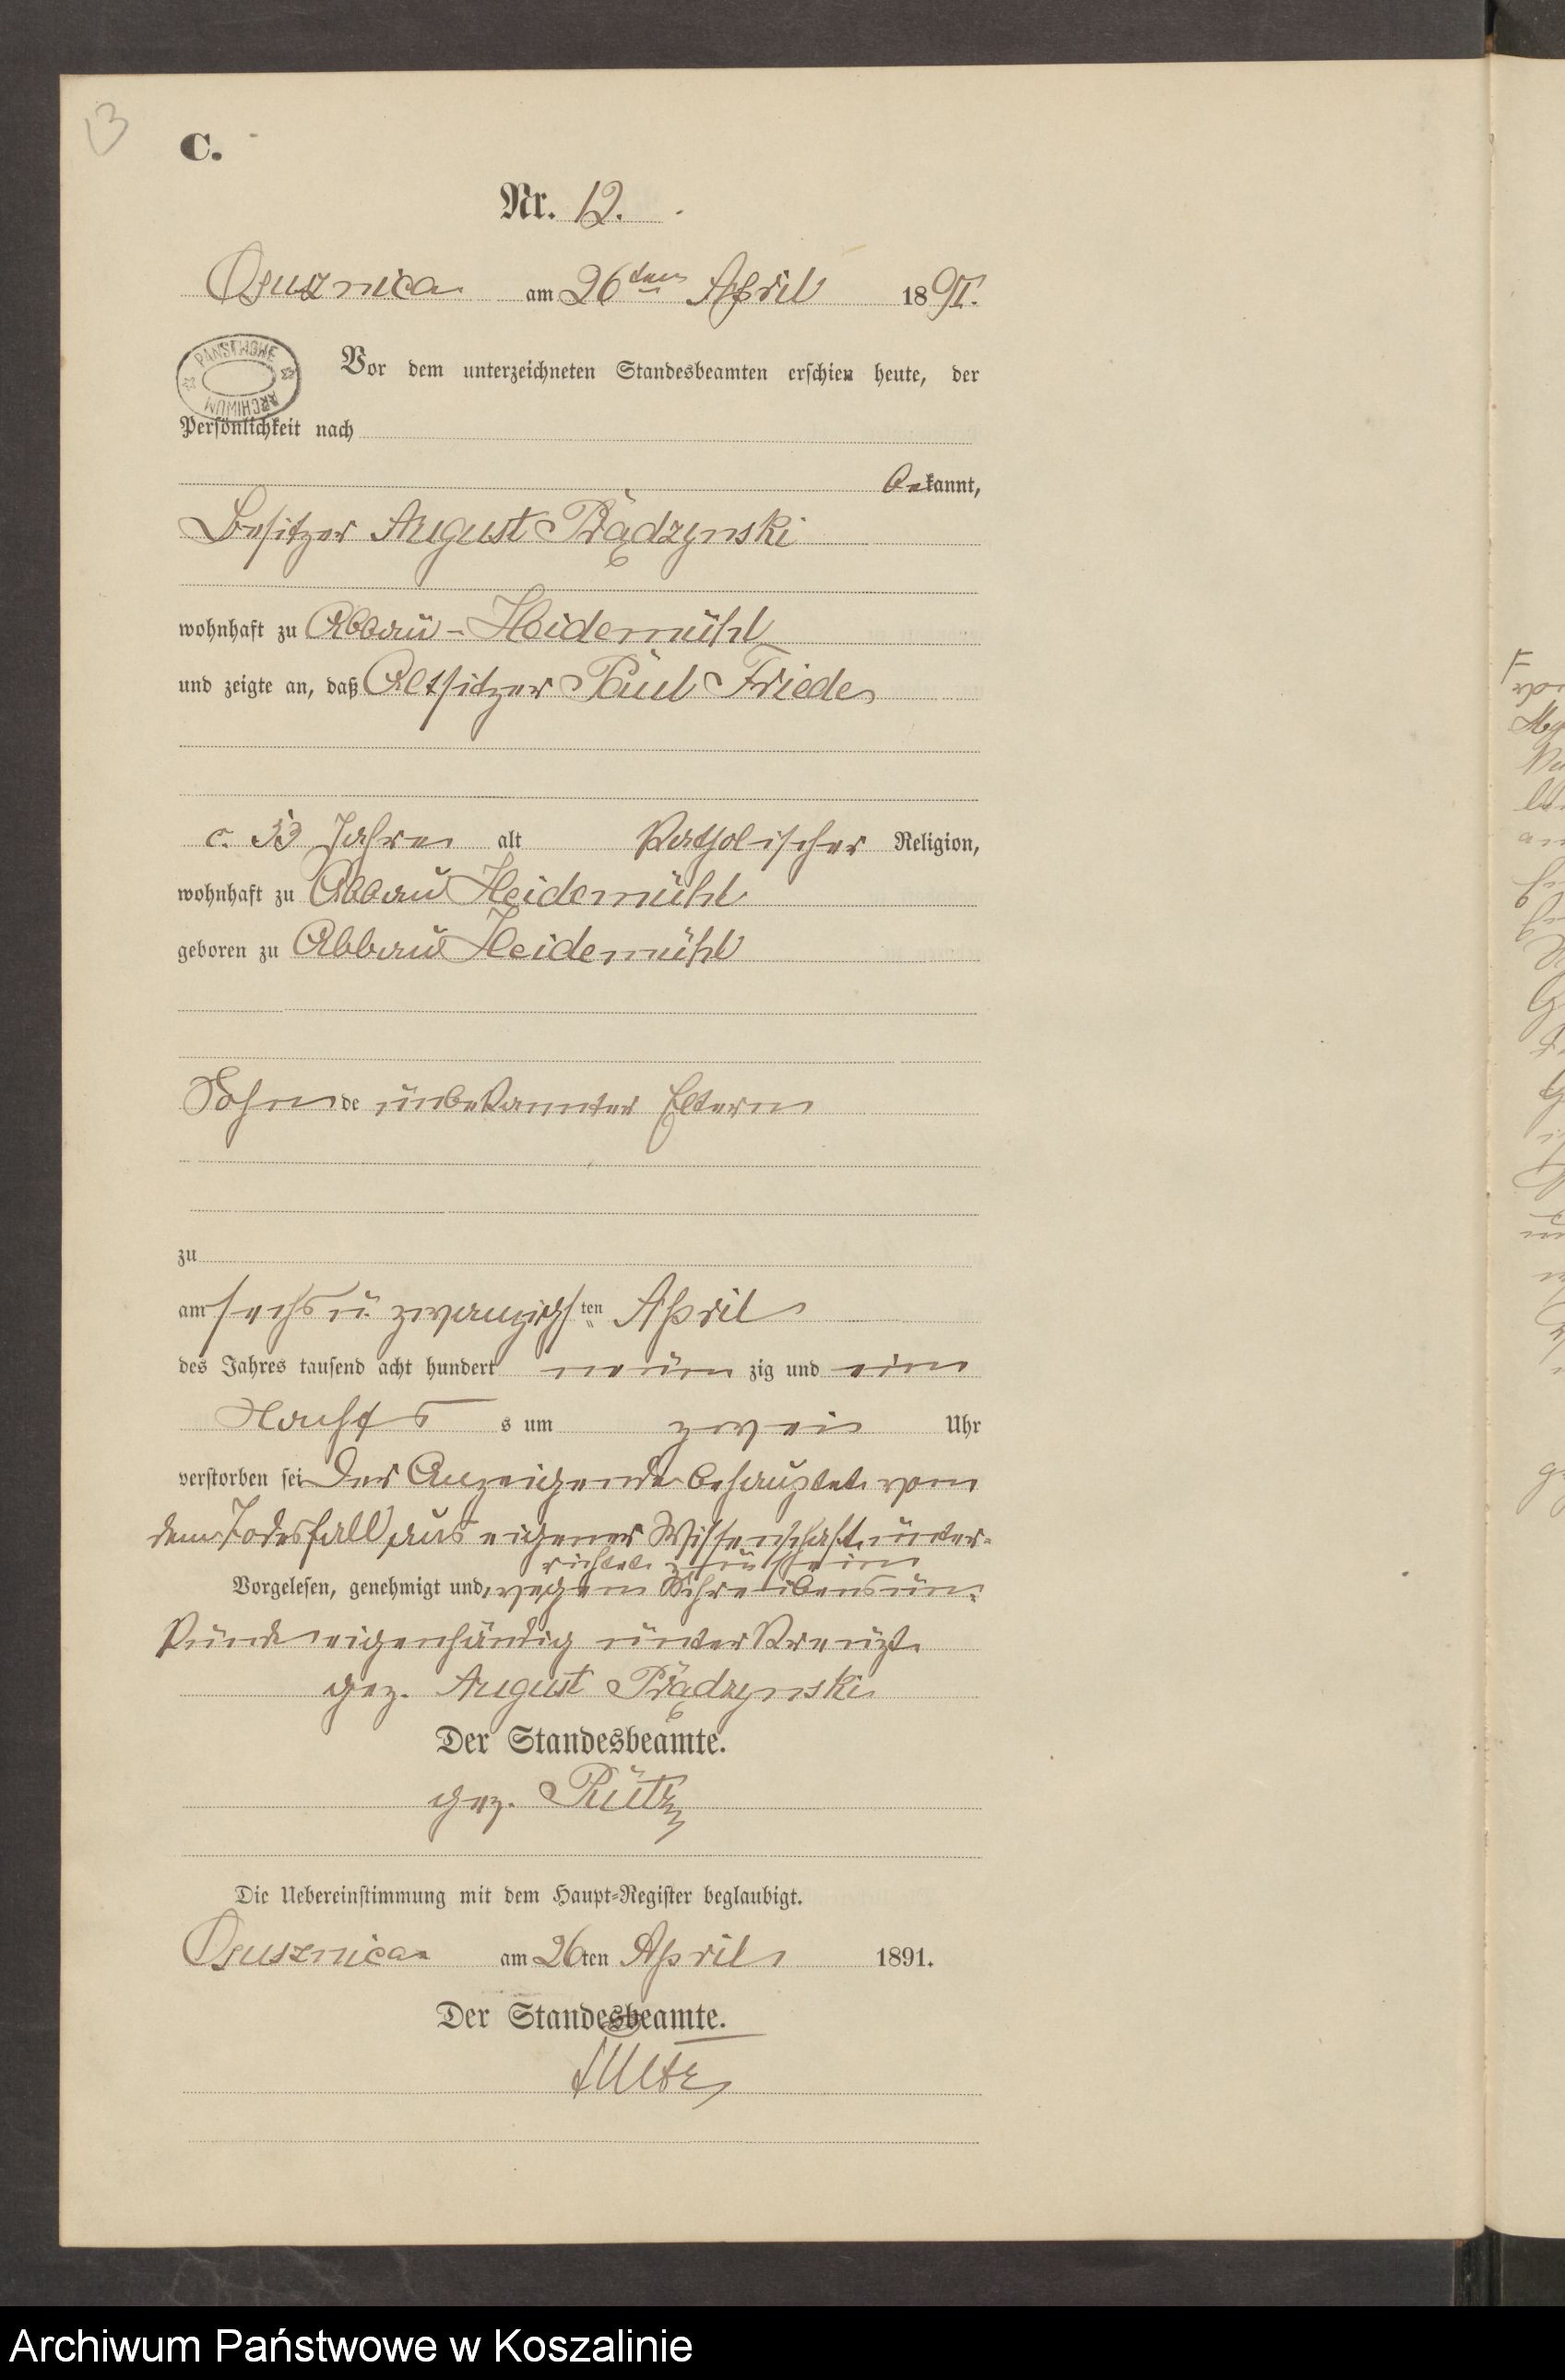 13
C.
Nr. 12.
Osusznica am 26ten April 1891.
PAŃSTWOWE ARCHIWUM
Vor dem unterzeichneten Standesbeamten erschien heute, der
Persönlichkeit nach
bekannt,
Besitzer August Prądzynski
wohnhaft zu Abbau-Heidemühl
und zeigte an, daß Altsitzer Paul Friede
c. 53 Jahre alt Katholischer Religion,
wohnhaft zu Abbau Heidemühl
geboren zu Abbau Heidemühl
Sohn de unbekannter Eltern
zu
am sechs u. zwanzigsten April
des Jahres tausend acht hundert neun zig und ein
Nachts s um zwei Uhr
verstorben sei Der Anzeigende behauptet von
dem Todesfall aus eigener Wissenschaft unter-
richtet zu sein
Vorgelesen, genehmigt und wegen Schreibensun-
kunde eigenhändig unterkreuzt
gez. August Prądzynski
Der Standesbeamte.
gez. Rütz
Die Uebereinstimmung mit dem Haupt-Register beglaubigt.
Osusznica am 26ten April 1891.
Der Standesbeamte.
Archiwum Państwowe w Koszalinie